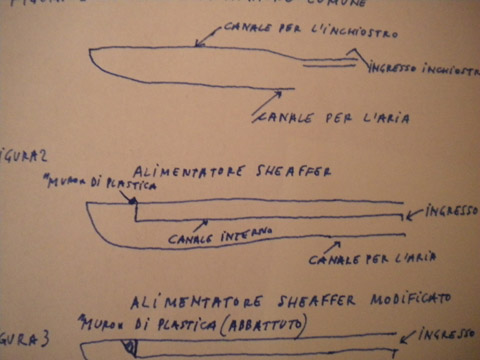 COMUNE
CANALE PER L'INCHIOSTRO
INGRESSO INCHIOSTR
CANALE PER L'ARIA
IGURA 2
ALIMENTATORE SHEAFFER
"MURO" DI PLASTICA
INGRESSO
CANALE INTERNO
CANALE PER L'ARIA
ALIMENTATORE SHEAFFER MODIFICATO
"MURO" DI PLASTICA (ABBATTUTO)
GURA 3
INGRESSO